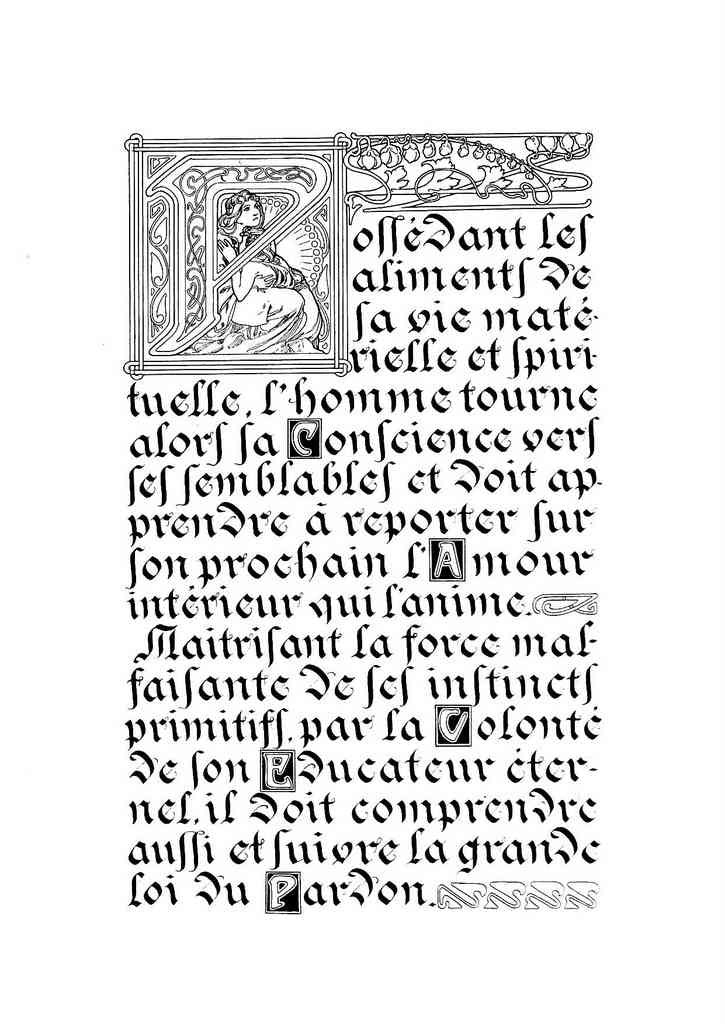 Possédant les
aliments de
sa vie maté-
rielle et spiri-
tuelle, l'homme tourne
alors sa Conscience vers
ses semblables et doit ap-
prendre à reporter sur
son prochain l'Amour
intérieur qui l'anime.
Maitrisant la force mal-
faisante de ses instincts
primitifs, par la Volonté
de son Educateur éter-
nel, il doit comprendre
aussi et suivre la grande
loi du Pardon.